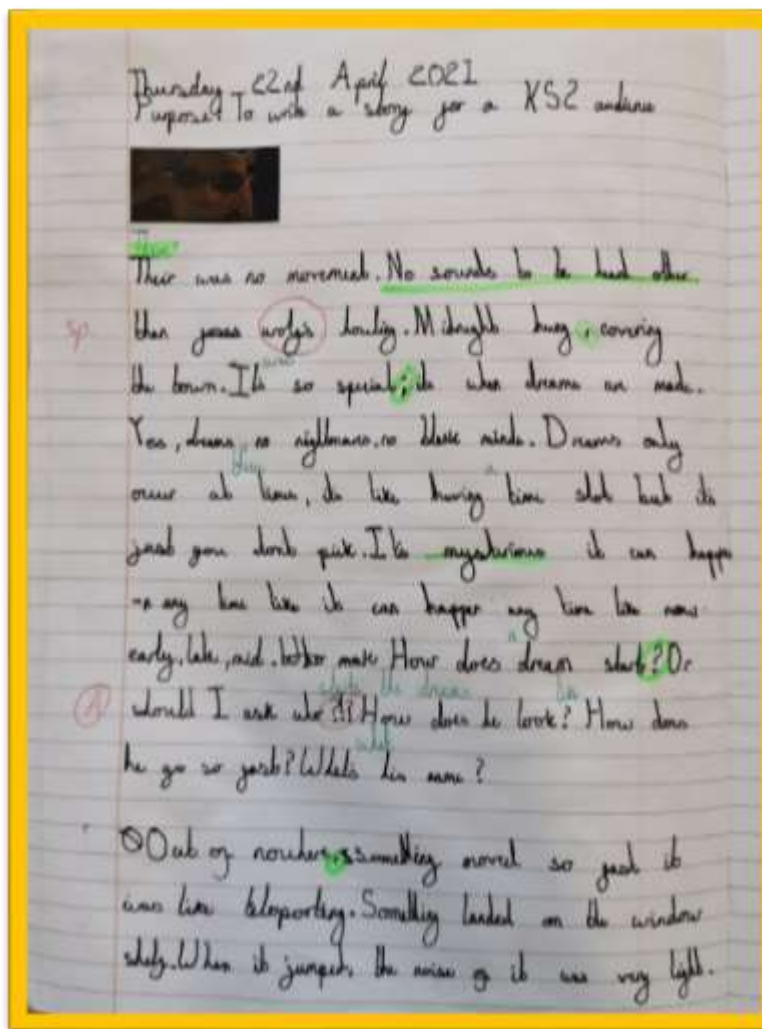 Thursday 22nd April 2021
Purpose: To write a story for a KS2 audience
There
Their was no movement. No sounds to be heard other
sp. then wolfs howling. Midnight hung, covering
the town. It's so special; its when dreams are made.
Yes, dreams no nightmares, no black minds. Dreams only
occur at time, its like having time slot but its
just you dont pick. It's mysterious it can happe
-n any time like it can happen any time like now
early, late, mid. How does dream start? Or
starts the dream
would I ask who ?! How does he look? How does
he go so fast? What's his name?
Out of nowhere, something moved so fast it
was like teleporting. Something landed on the window
When it jumped, the noise of it was very light.